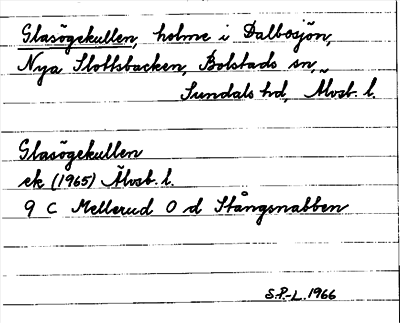 Glasögekullen, holme i Dalbosjön,
Nya Slottsbacken, Bolstads sn,
Sundals hd, Älvsb. l.
Glasögekullen
ek (1965) Älvsb. l.
9 C Mellerud O d Stångsnabben
S.P.-L. 1966